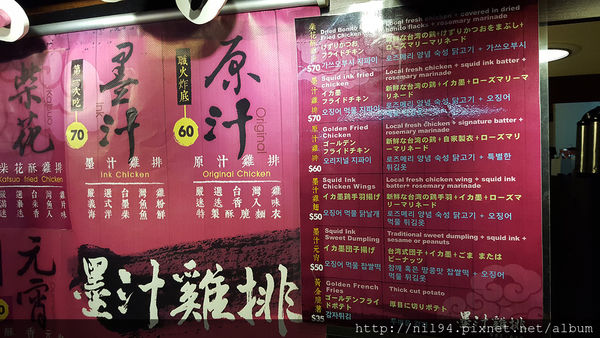 柴花
Katsuo
柴花酥雞排
Katsuo Chicken
元宵
第一次吃
墨汁
Ink
70
墨汁雞排
Ink Chicken
嚴選台灣雞
義式墨魚粉
海洋柴魚鮮
職火炸底
原汁
Original
60
原汁雞排
Original Chicken
嚴選台灣雞
迷迭香入味
特製酥脆麵衣
墨汁雞排
柴花酥雞排
$70
Fried Chicken
けずりかつお
フライドチキン
가쓰오부시 지파이
Local fresh chicken + covered in dried
bonito flacks + rosemary marinade
新鮮な台湾の鶏+けずりかつおをまぶし+ロー
ズマリーマリネード
로즈메리 양념 숙성 닭고기 + 가쓰오부시
墨汁雞排
$70
Squid ink fried
chicken
イカ墨
フライドチキン
오징어 먹물 지파이
Local fresh chicken + squid ink batter +
rosemary marinade
新鮮な台湾の鶏+イカ墨+ローズマリーマリ
ネード
로즈메리 양념 숙성 닭고기 + 오징어
原汁雞排
$60
Golden Fried
Chicken
ゴールデン
フライドチキン
오리지널 지파이
Local fresh chicken + signature batter +
rosemary marinade
新鮮な台湾の鶏+自家製衣+ローズマリ
ーマリネード
로즈메리 양념 숙성 닭고기 + 특별한
튀김옷
墨汁雞翅
$50
Squid Ink
Chicken Wings
イカ墨鶏手羽揚げ
오징어 먹물 닭날개
Local fresh chicken wing + squid ink
batter+ rosemary marinade
新鮮な台湾の鶏手羽+イカ墨+ローズ
マリーマリネード
로즈메리 양념 숙성 닭고기 + 오징어
먹물 튀김옷
墨汁元宵
$50
Squid Ink
Sweet Dumpling
イカ墨団子揚げ
오징어 먹물 찹쌀떡
Traditional sweet dumpling + squid ink +
sesame or peanuts
台湾式団子+イカ墨+ごま または
ピーナッツ
검깨 혹은 땅콩맛 찹쌀떡 + 오징어
먹물 튀김옷
黃金脆薯
$35
Golden French
Fries
ゴールデンフライ
ドポテト
감자튀김
Thick cut potato
厚目に切りポテト
墨汁雞排
http://nil94.pixnet.net/album